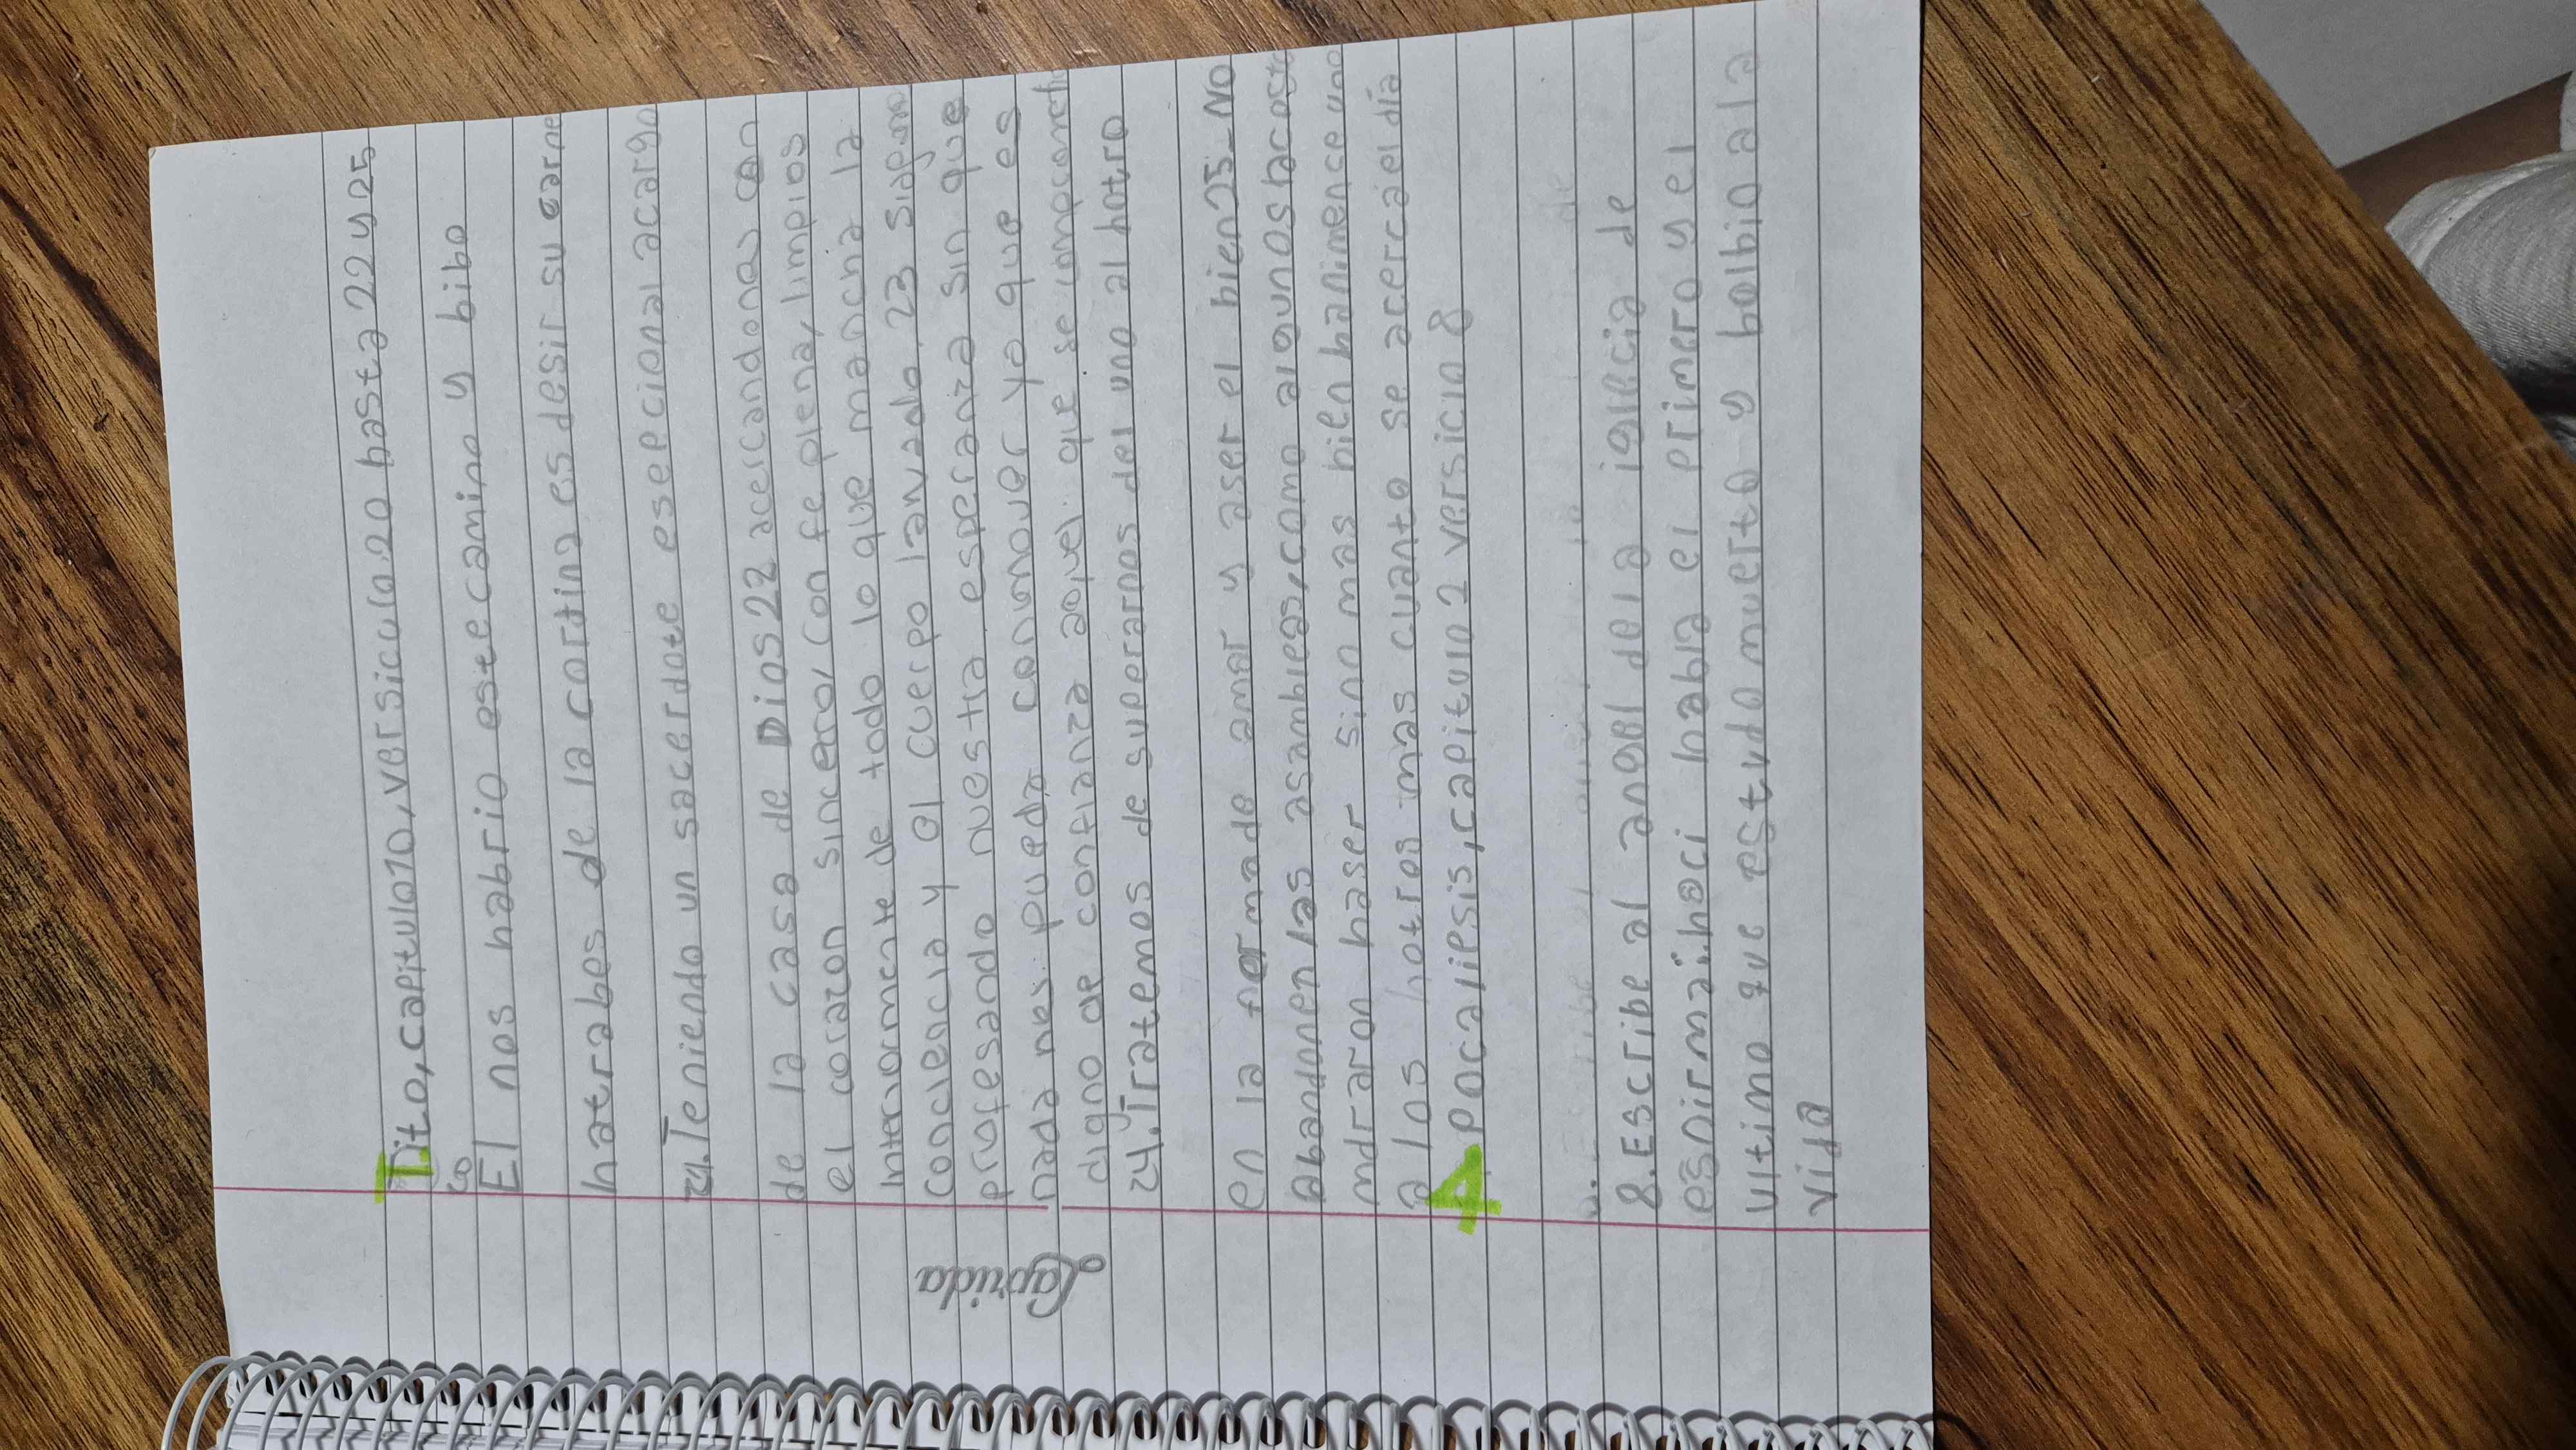 Tito, capitulo 10, versiculo. 20 hasta 22 y 25
20
El nos habrio este camino y bibo
hatrabes de la cortina es desir su carne
21. Teniendo un sacerdote esepcional acargo
de la casa de Dios 22 acercandones con
el corazon sincero, con fe plena, limpios
interiormente de todo lo que mancha la
conciencia y el cuerpo lanvado. 23 sigamo
profesando nuestra esperanza sin que
nada nes pueda conmover ya que es
digno de confianza aquel que se
24. Tratemos de superarnos del uno al hotro
en la formade amar y aser el bien 25_No
abandonen las asambleas, como algunos
haser sino mas bien hanimense uno
a los hotros mas cuanto se acerca el dia
Apocaliesis, capitulo 2 versiclo 8
8. Escribe al angel de la iglecia de
esnirma: haci habla el primero y el
ultimo que estudo muerto y bolbio ala
vida
Laprida